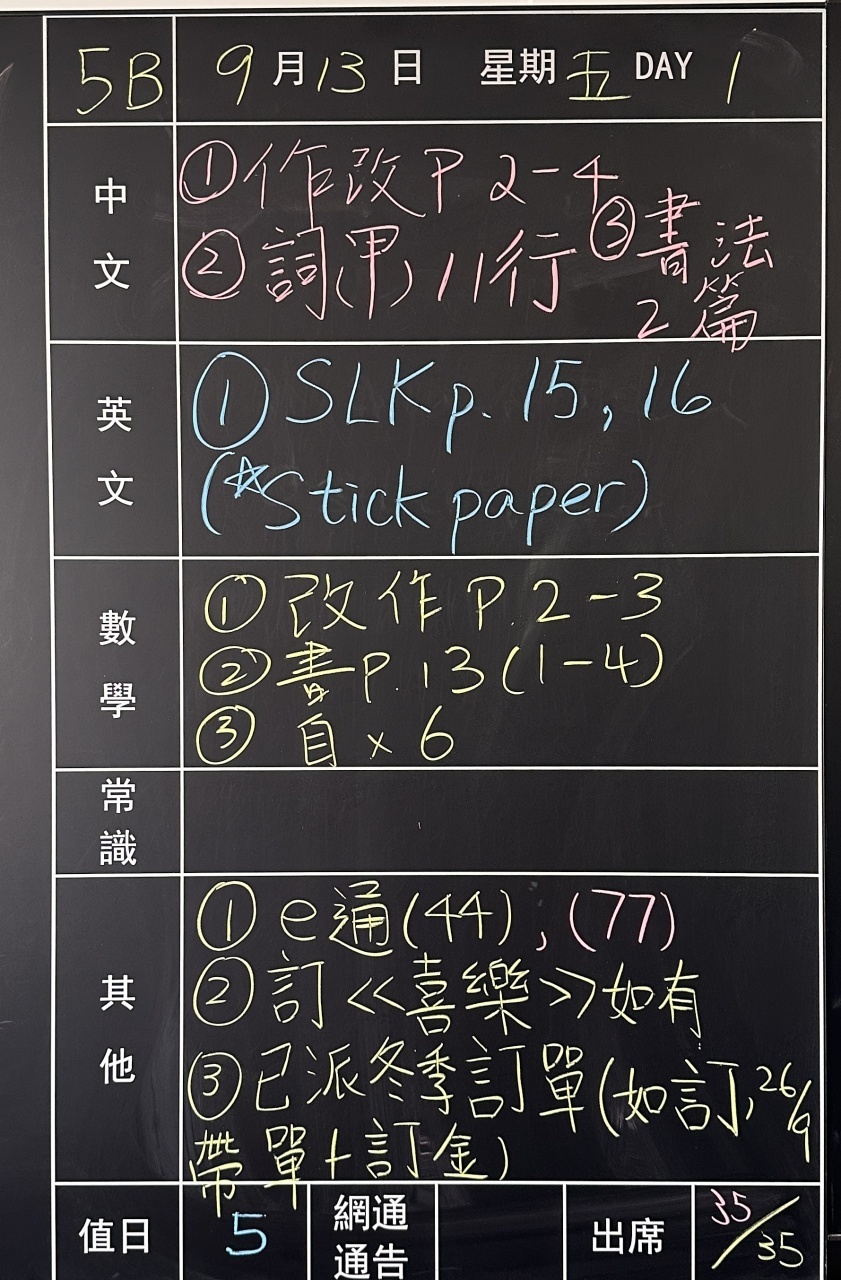 5B 9月13日 星期五 DAY 1
中文
①作改P 2-4
②詞(甲) 11行 ③書法
2篇
英文
① SLK p. 15, 16
(☆Stick paper)
數學
① 改作 P. 2-3
② 書P. 13 (1-4)
③ 自 × 6
常識
其他
① e通(44), (77)
② 訂<<喜樂>>如有
③已派冬季訂單(如訂, 26/9
帶單+訂金)
值日 5 網通通告 出席 35/35